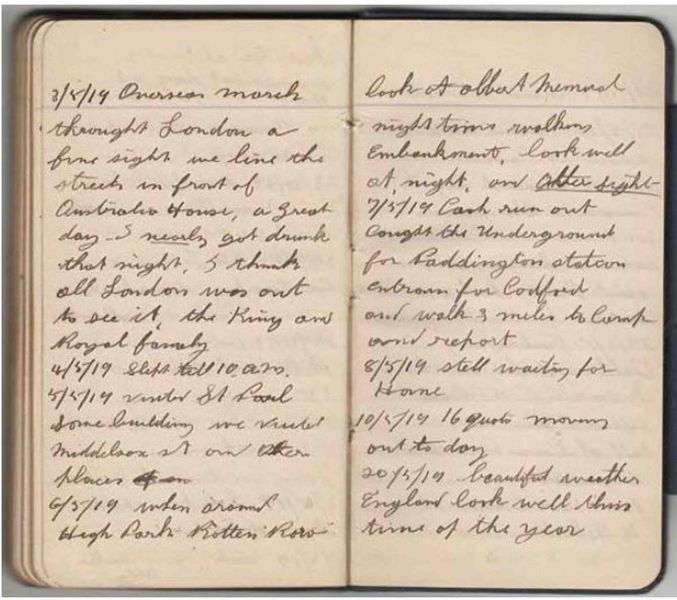 3/5/19 Overseas march
throught London a
fine sight we line the
streets in front of
Australia House, a Great
day - I nearly got drunk
that night, I think
all London was out
to see it, the King and
Royal family
4/5/19 Slept till 10 a.m.
5/5/19 visited St Paul
some building we visited
Middelsex st and other
places
6/5/19 when around
High Park Rotten Row
look at Albert Memorial
night time walking
Embankment, look well
at night, and other sight
7/5/19 Cash run out
caught the Underground
for Paddington station
entrain for Codford
and walk 3 miles to Camp
and report
8/5/19 still waiting for
Home
10/5/19 16 quota moving
out to day
20/5/19 beautiful weather
England look well this
time of the year